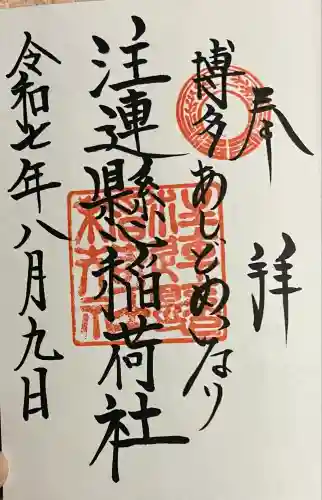 奉拝
博多あしどめいなり
注連懸稲荷社
令和七年八月九日